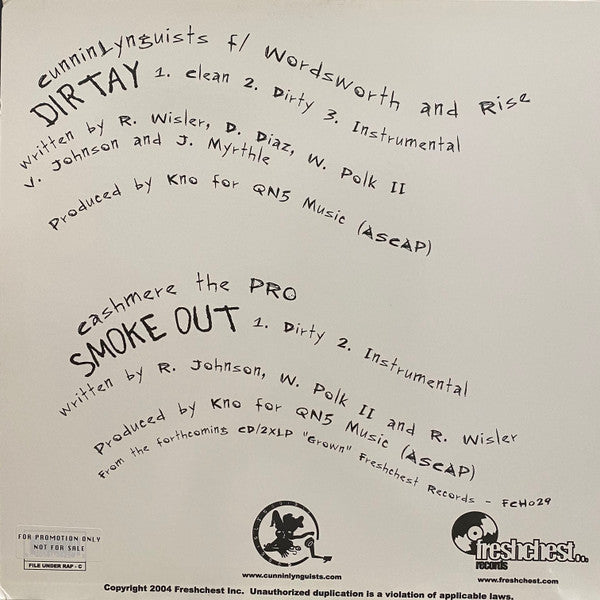 cunninLynguists f/ Wordsworth and Rise
DIRTAY 1. clean 2. Dirty 3. Instrumental
written by R. Wisler, D. Diaz, W. Polk II
V. Johnson and J. Myrthle
Produced by Kno for QN5 Music (ASCAP)
cashmere the PRO
SMOKE OUT 1. Dirty 2. Instrumental
written by R. Johnson, W. Polk II and R. Wisler
Produced by Kno for QN5 Music (ASCAP)
From the forthcoming CD/2XLP "Grown" Freshchest Records - FCH029
FOR PROMOTION ONLY
NOT FOR SALE
FILE UNDER RAP - C
www.cunninlynguists.com
freshchest...
records
www.freshchest.com
Copyright 2004 Freshchest Inc. Unauthorized duplication is a violation of applicable laws.